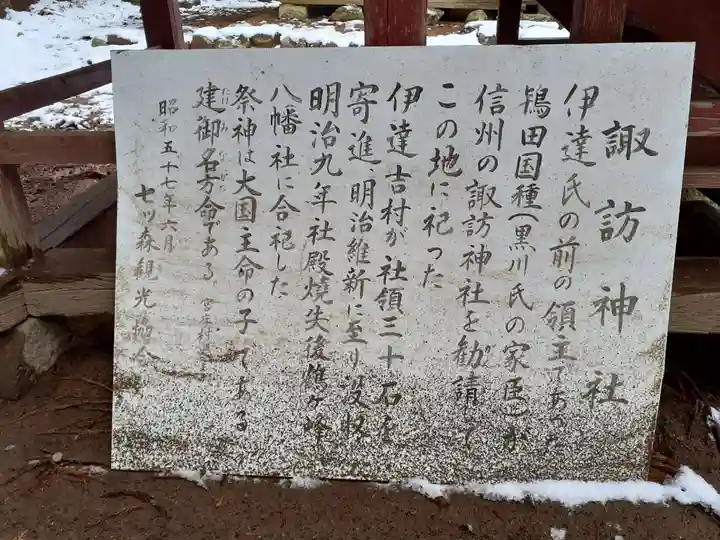 諏訪神社
伊達氏の前の領主であった
鴇田国種(黒川氏の家臣)が
信州の諏訪神社を勧請して
この地に祀った
伊達吉村が社領三十石を
寄進、明治維新に至り没収
明治九年社殿焼失後鶴ヶ峰
八幡社に合祀した
祭神は大国主命の子である
建御名方命である。
昭和五十七年六月
七ツ森観光協会